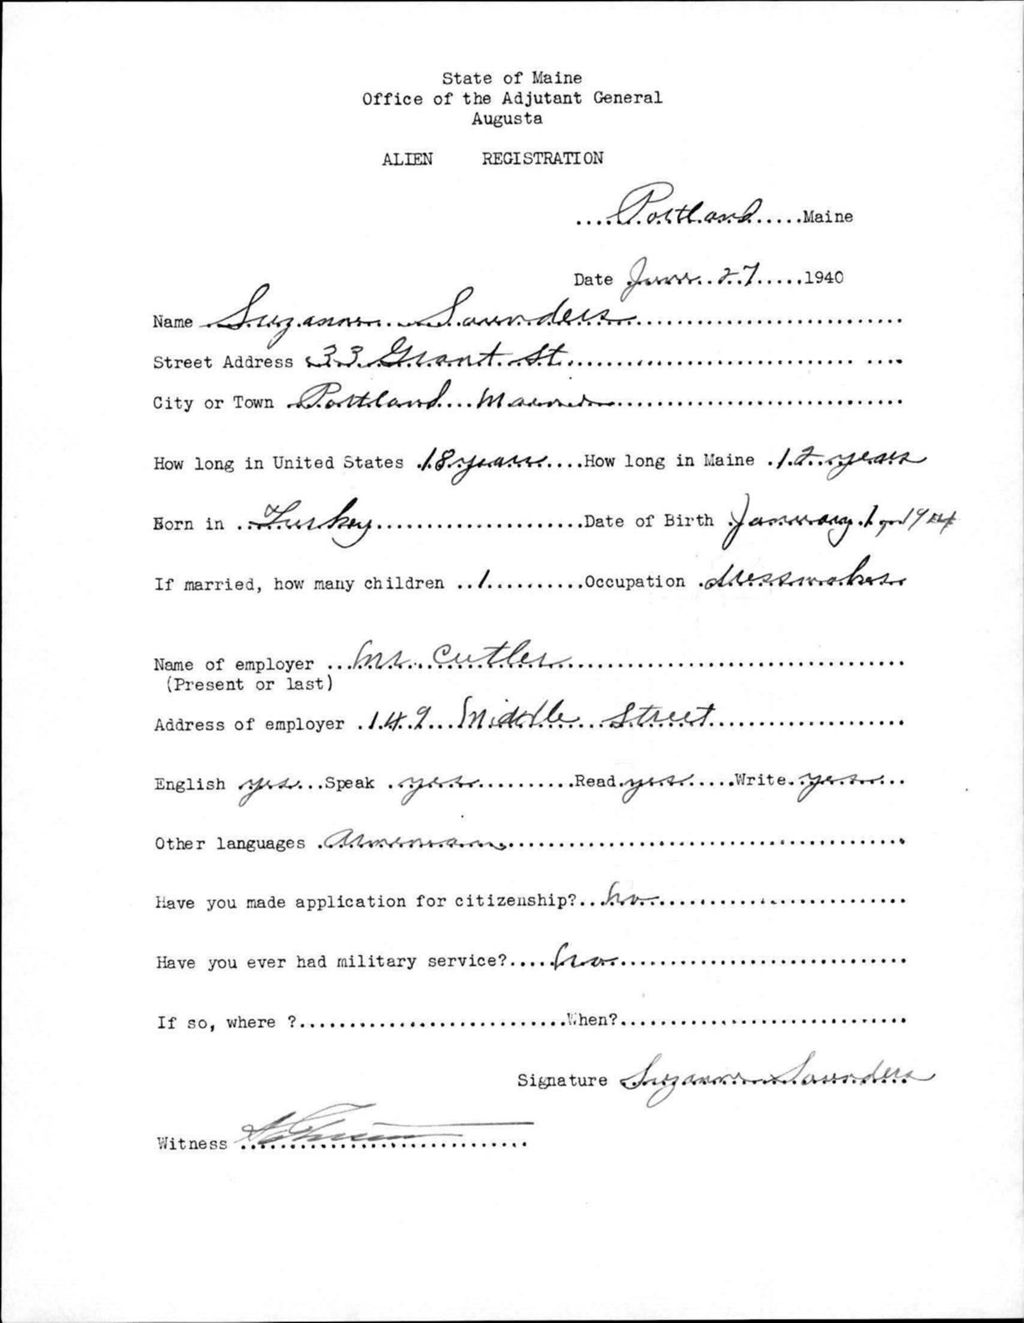 State of Maine
Office of the Adjutant General
Augusta
ALIEN REGISTRATION
....Portland.....Maine
Date June 27.....1940
Name Suzanne Saunders
Street Address 33 Grant St.
City or Town Portland Maine
How long in United States 18 years....How long in Maine 12 years
Born in Turkey Date of Birth January 1
If married, how many children ..1..........Occupation dressmaker
Name of employer ...Mr. Cutler
(Present or last)
Address of employer .149 Middle Street
English yes...Speak yes Read yes.....Write yes...
Other languages Armenian
Have you made application for citizenship?...no
Have you ever had military service?.....no
If so, where ? When?
Signature Suzanne Saunders
Witness